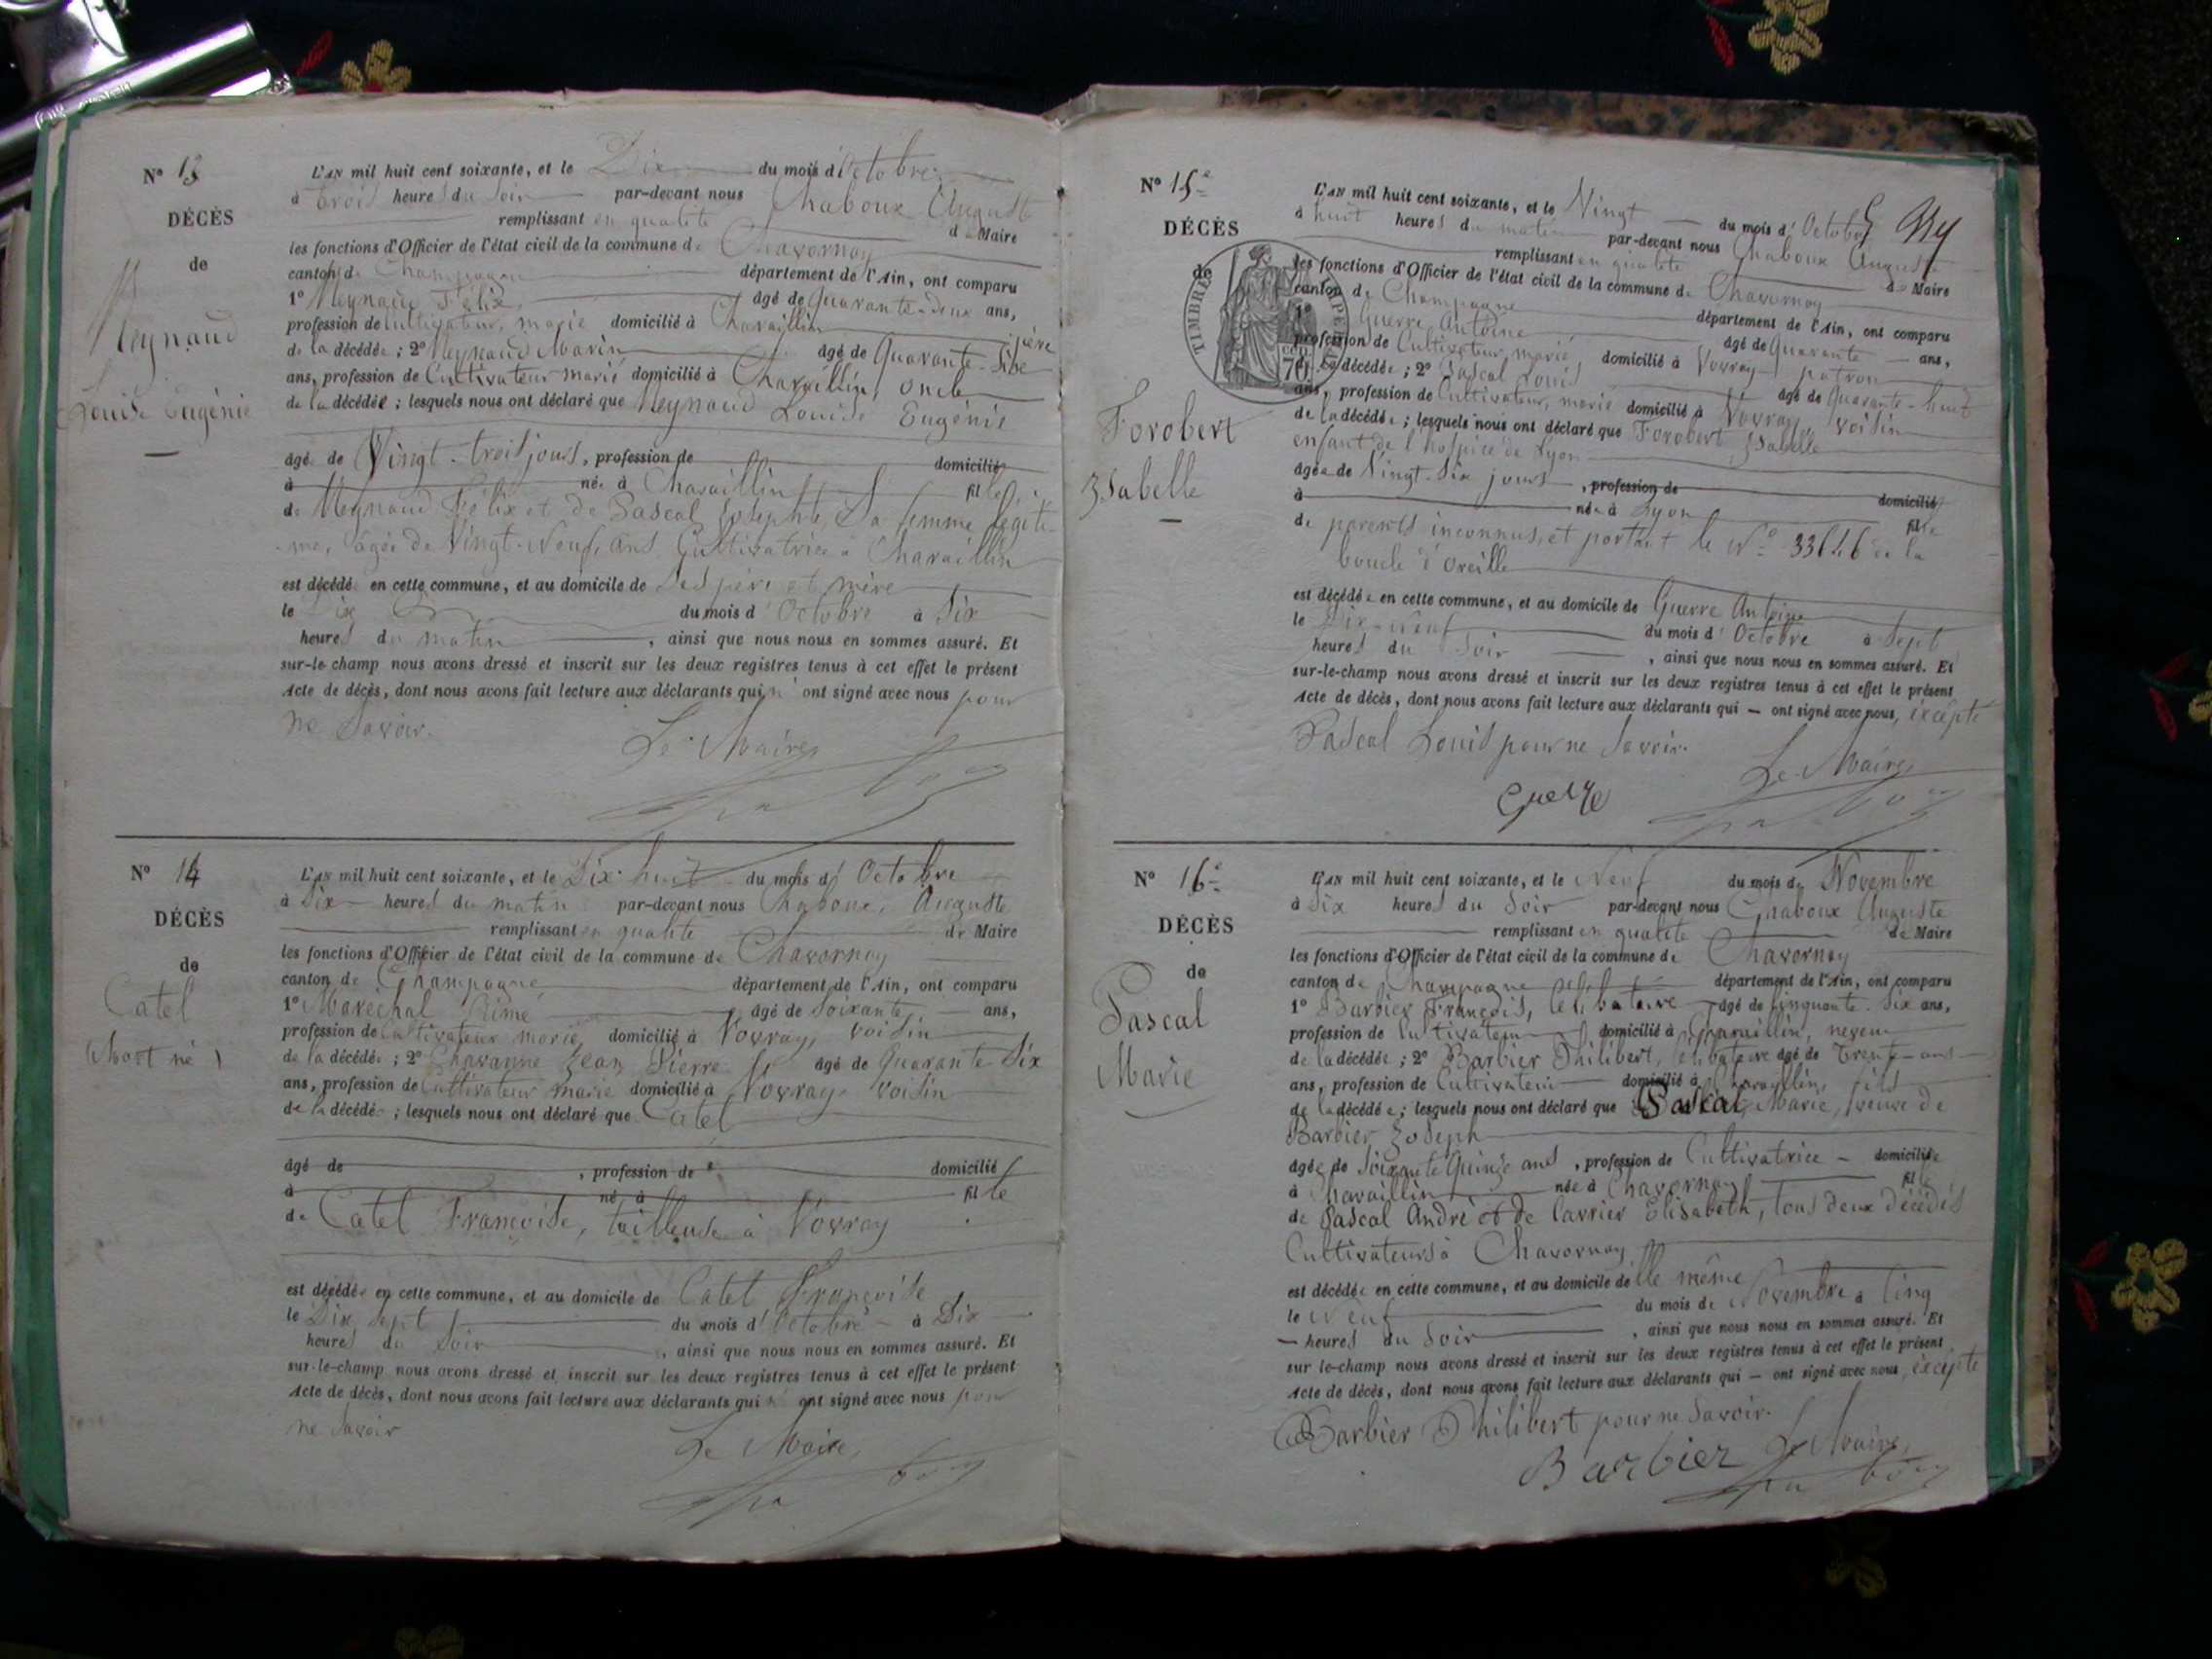 N° 13
DÉCÈS
de
Meynaud
Louise Eugénie
L'AN mil huit cent soixante, et le Dix du mois d'Octobre
à trois heures du Soir par-devant nous Chaboux Auguste
remplissant en qualité de Maire
les fonctions d'Officier de l'état civil de la commune de Chavornay
canton de Champagne département de l'Ain, ont comparu
1° Meynaud Félix âgé de Quarante-deux ans,
profession de Cultivateur, marié domicilié à Charaillin père
de la décédée ; 2° Meynaud Marin âgé de Quarante-Six
ans, profession de Cultivateur marié domicilié à Charaillin, oncle
de la décédée ; lesquels nous ont déclaré que Meynaud Louise Eugénie
âgé de Vingt-trois jours, profession de domicilié
à née à Charaillin fille
de Meynaud Félix et de Pascal Josephte, Sa femme légiti-
me, âgée de Vingt-Neuf ans Cultivatrice à Charaillin
est décédé en cette commune, et au domicile de Ses père et mère
le Dix du mois d'Octobre à Six
heures du matin , ainsi que nous nous en sommes assuré. Et
sur-le-champ nous avons dressé et inscrit sur les deux registres tenus à cet effet le présent
Acte de décès, dont nous avons fait lecture aux déclarants qui n'ont signé avec nous pour
ne Savoir.
Le Maire
N° 14
DÉCÈS
de
Catel
(Mort né)
L'AN mil huit cent soixante, et le Dix-huit du mois d'Octobre
à Dix heures du matin par-devant nous Chaboux, Auguste
remplissant en qualité de Maire
les fonctions d'Officier de l'état civil de la commune de Chavornay
canton de Champagne département de l'Ain, ont comparu
1° Maréchal Aimé âgé de Soixante ans,
profession de Cultivateur marié, domicilié à Vovray, voisin
de la décédée ; 2° Chavanne Jean Pierre âgé de Quarante Six
ans, profession de Cultivateur marié domicilié à Vovray voisin
de la décédée ; lesquels nous ont déclaré que Catel
âgé de , profession de domicilié
à né à fille
de Catel Françoise, tailleuse à Vovray
est décédée en cette commune, et au domicile de Catel Françoise
le Dix Sept du mois d'Octobre à Dix
heures du Soir , ainsi que nous nous en sommes assuré. Et
sur-le-champ nous avons dressé et inscrit sur les deux registres tenus à cet effet le présent
Acte de décès, dont nous avons fait lecture aux déclarants qui n'ont signé avec nous pour
ne Savoir
Le Maire
N° 15e
DÉCÈS
de
TIMBRE
70
Forobert
Isabelle
L'AN mil huit cent soixante, et le Vingt du mois d'Octobre
à huit heures du matin par-devant nous Chaboux Auguste
remplissant en qualité de Maire
les fonctions d'Officier de l'état civil de la commune de Chavornay
canton de Champagne département de l'Ain, ont comparu
1° Guerre Antoine âgé de Quarante ans,
profession de Cultivateur, marié, domicilié à Vovray patron
de la décédée ; 2° Pascal Louis âgé de Quarante-huit
ans, profession de Cultivateur, marié domicilié à Vovray, voisin
de la décédée ; lesquels nous ont déclaré que Forobert Isabelle
enfant de l'hospice de Lyon
âgée de Vingt-Six jours , profession de domicilié
à née à Lyon fille
de parents inconnus, et portait le N° 33646 de la
boucle d'oreille
est décédée en cette commune, et au domicile de Guerre Antoine
le Dix-neuf du mois d'Octobre à Sept
heures du Soir , ainsi que nous nous en sommes assuré. Et
sur-le-champ nous avons dressé et inscrit sur les deux registres tenus à cet effet le présent
Acte de décès, dont nous avons fait lecture aux déclarants qui — ont signé avec nous, excepté
Pascal Louis pour ne Savoir.
Le Maire
Guerre
N° 16e
DÉCÈS
de
Pascal
Marie
L'AN mil huit cent soixante, et le Neuf du mois de Novembre
à Six heures du Soir par-devant nous Chaboux Auguste
remplissant en qualité de Maire
les fonctions d'Officier de l'état civil de la commune de Chavornay
canton de Champagne département de l'Ain, ont comparu
1° Barbier François, célibataire âgé de Cinquante-Six ans,
profession de Cultivateur domicilié à Charaillin, neveu
de la décédée ; 2° Barbier Philibert, célibataire âgé de Trente-ans
ans, profession de Cultivateur domicilié à Charaillin, fils
de la décédée ; lesquels nous ont déclaré que Pascal Marie, veuve de
Barbier Joseph
âgée de Soixante Quinze ans , profession de Cultivatrice — domiciliée
à Charaillin née à Chavornay fille
de Pascal André et de Carrier Elisabeth, tous deux décédés
Cultivateurs à Chavornay
est décédée en cette commune, et au domicile de elle même
le Neuf du mois de Novembre à Cinq
— heures du Soir , ainsi que nous nous en sommes assuré. Et
sur le-champ nous avons dressé et inscrit sur les deux registres tenus à cet effet le présent
Acte de décès, dont nous avons fait lecture aux déclarants qui — ont signé avec nous, excepté
Barbier Philibert pour ne Savoir.
Barbier Le Maire,